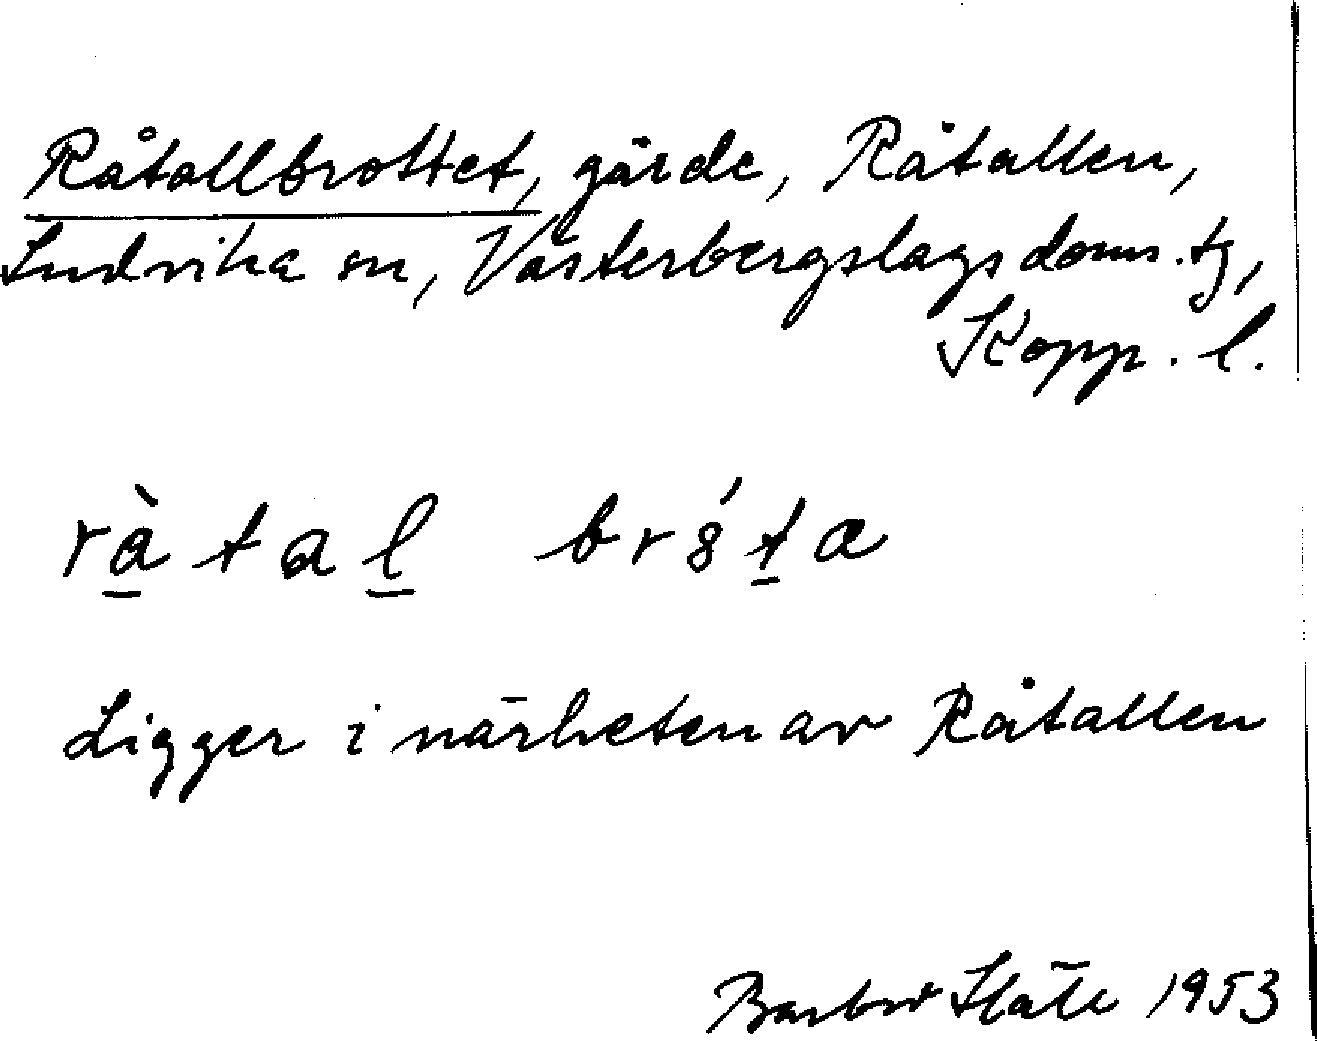 Råtallbrottet, gärde, Råtallen,
Ludvika sn, Västerbergslags doms. tg,
Kopp. l.
ràtal brśta
Ligger i närheten av Råtallen
Barbro 1953